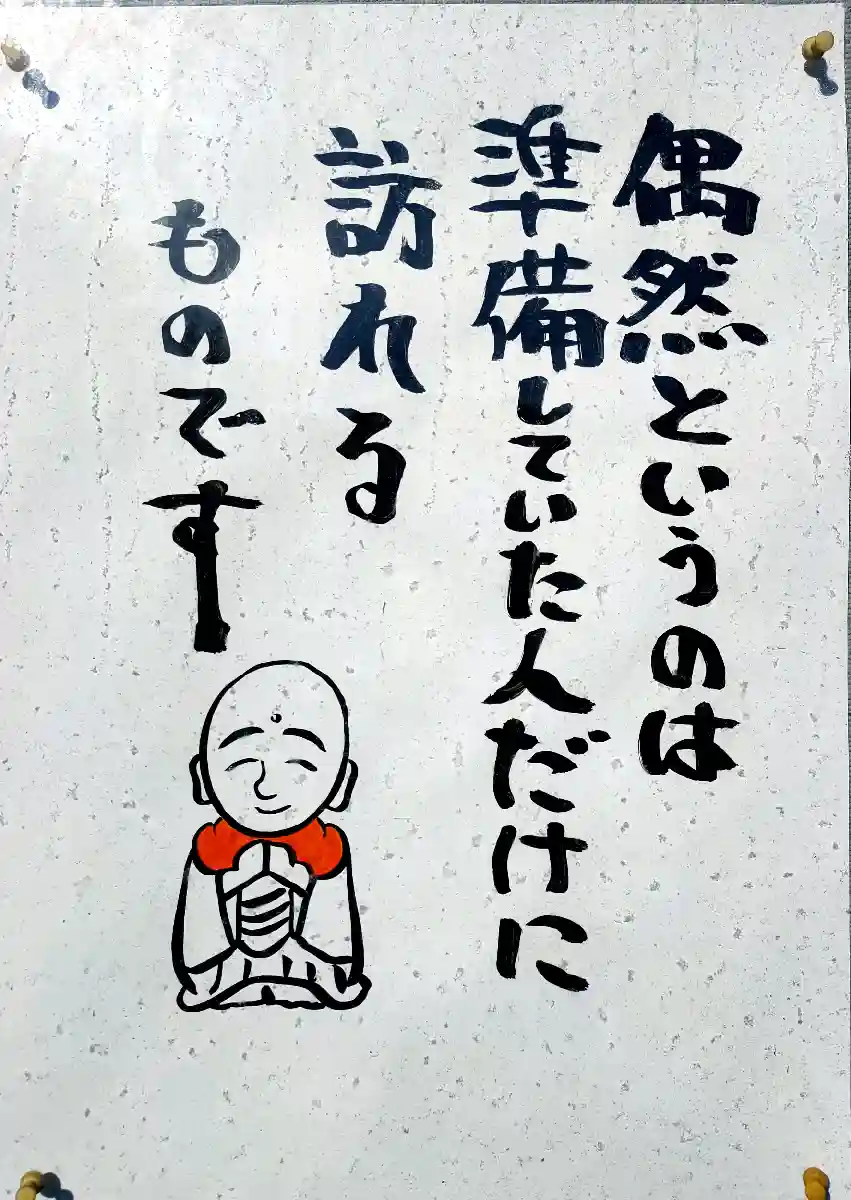 偶然というのは
準備していた人だけに
訪れる
ものです